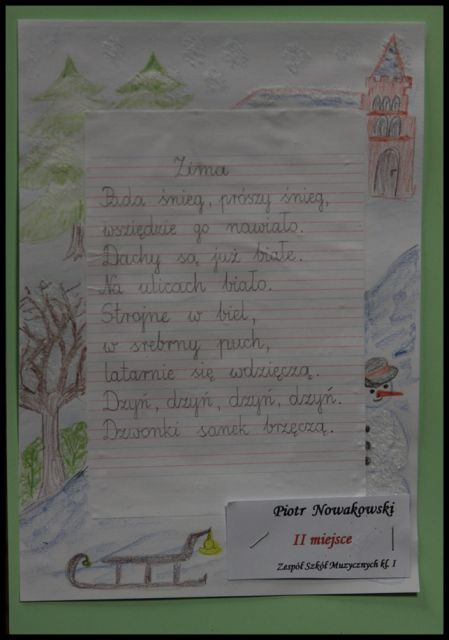 Zima
Pada śnieg, prószy śnieg,
wszędzie go nawiało.
Dachy są już białe.
Na ulicach biało.
Strojne w biel,
w srebrny puch,
latarnie się wdzięczą.
Dzyń, dzyń, dzyń, dzyń.
Dzwonki sanek brzęczą.
Piotr Nowakowski
II miejsce
Zespół Szkół Muzycznych kl. I